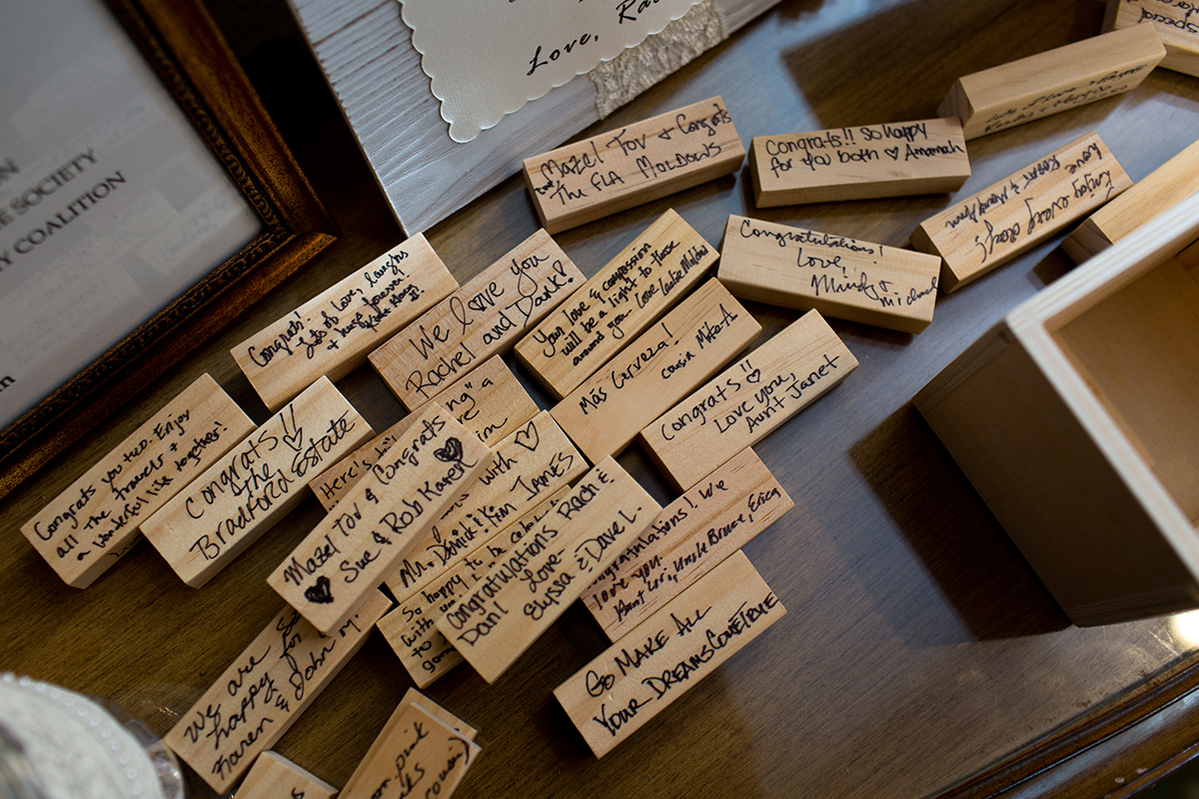 E SOCIETY
Y COALITION
Love,
Mazel Tov & Congrats
The FLA Moldows
Congrats!! So happy
for you both ♡ Amannah
Enjoy every day!
Love
Congratulations!
Love,
Mindy &
Michael
Congrats!
Lots of love, laughs
& have forever!
We love you
Rachel and Dan!♡
Your love & compassion
will be a light to those
around you.
Love
Más Cerveza!
Cousin Mike A.
Congrats!! ♡
Love you,
Aunt Janet
Congrats you two. Enjoy
all the travels &
a wonderful life together!
Congrats!!
♡ the
Bradford Estate
Here's
Mazel Tov & Congrats
Sue & Rob Karen
with ♡
James
So happy to
with
to
Congratulations Rach &
Dan! Love-
Elyssa & Dave L.
Congratulations! We
love you.
Aunt Lor, Uncle Bruce, Erica
Go Make All
Your Dreams Come True
We are so
happy for
Karen & John M.
pink